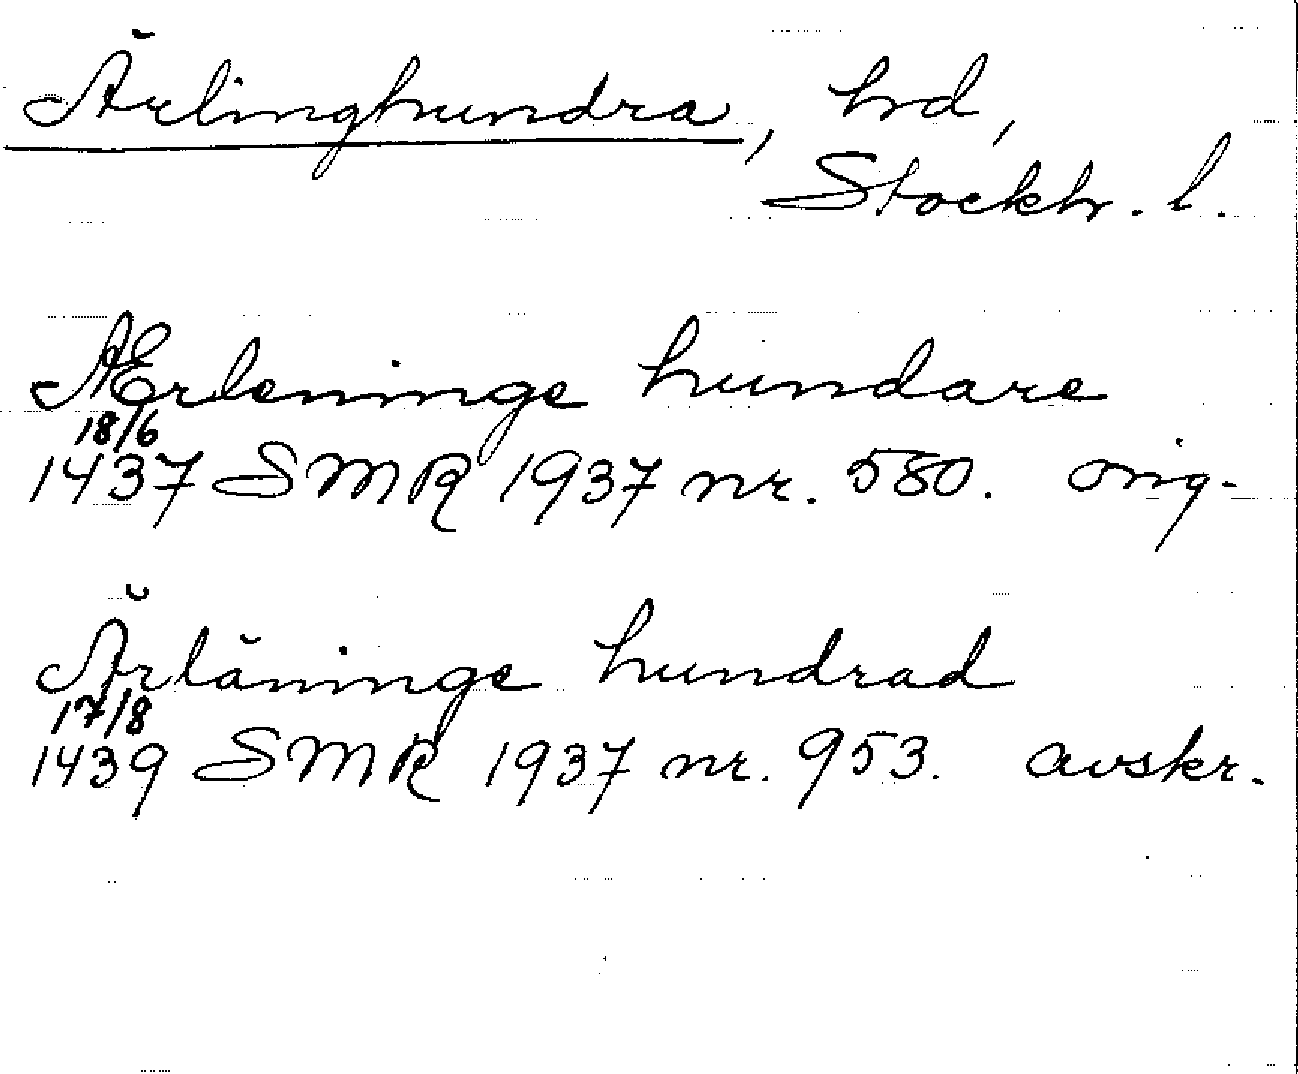 Ärlinghundra, hrd,
Stockh. l.
Ærleninge hundare
18/6
1437 SMR 1937 nr. 580. orig.
Ärläninge hundrad
17/8
1439 SMR 1937 nr. 953. avskr.